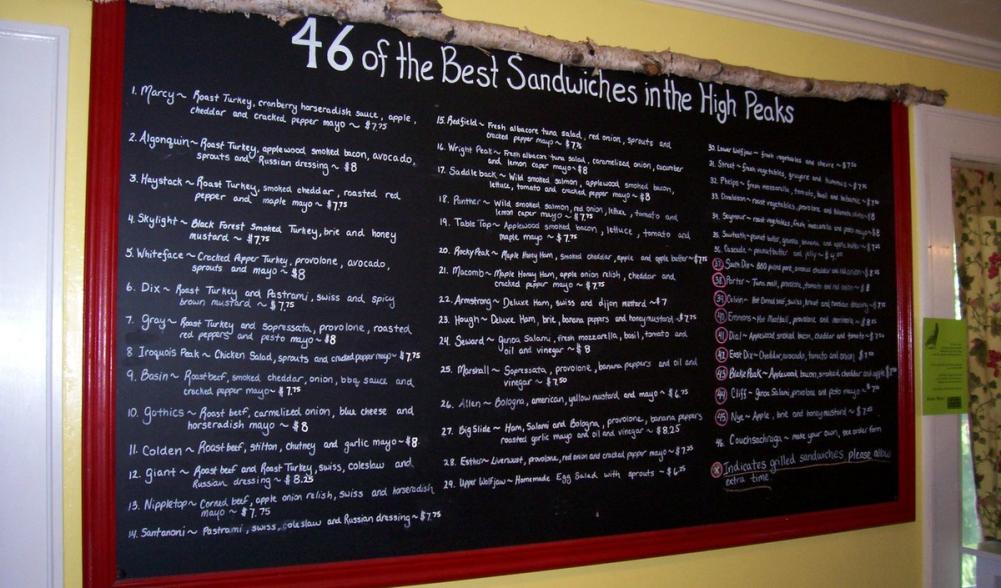 46 of the Best Sandwiches in the High Peaks
1. Marcy ~ Roast Turkey, cranberry horseradish sauce, apple,
cheddar and cracked pepper mayo ~ $7.75
2. Algonquin ~ Roast Turkey, applewood smoked bacon, avocado,
sprouts and Russian dressing ~ $8
3. Haystack ~ Roast Turkey, smoked cheddar, roasted red
pepper and maple mayo ~ $7.75
4. Skylight ~ Black Forest Smoked Turkey, brie and honey
mustard ~ $7.75
5. Whiteface ~ Cracked Pepper Turkey, provolone, avocado,
sprouts and mayo ~ $8
6. Dix ~ Roast Turkey and Pastrami, swiss and spicy
brown mustard ~ $7.75
7. Gray ~ Roast Turkey and Sopressata, provolone, roasted
red peppers and pesto mayo ~ $8
8 Iroquois Peak ~ Chicken Salad, sprouts and cracked pepper mayo ~ $7.75
9. Basin ~ Roast beef, smoked cheddar, onion, bbq sauce and
cracked pepper mayo ~ $7.75
10. Gothics ~ Roast beef, carmelized onion, blue cheese and
horseradish mayo ~ $8
11. Colden ~ Roast beef, stilton, chutney and garlic mayo ~ $8
12. Giant ~ Roast beef and Roast Turkey, swiss, coleslaw and
Russian dressing ~ $8.25
13. Nippletop ~ Corned beef, apple onion relish, swiss and horseradish
mayo ~ $7.75
14. Santanoni ~ Pastrami, swiss, coleslaw and Russian dressing ~ $7.75
15. Redfield ~ Fresh albacore tuna salad, red onion, sprouts and
cracked pepper mayo ~ $7.75
16. Wright Peak ~ Fresh albacore tuna salad, caramelized onion, cucumber
and lemon caper mayo ~ $8
17. Saddleback ~ Wild smoked salmon, applewood smoked bacon,
lettuce, tomato and cracked pepper mayo ~ $8
18. Panther ~ Wild smoked salmon, red onion, lettuce, tomato and
lemon caper mayo ~ $7.75
19. Table Top ~ Applewood smoked bacon, lettuce, tomato and
maple mayo ~ $7.75
20. Rocky Peak ~ Maple Honey Ham, smoked cheddar, apple and apple butter ~ $7.75
21. Macomb ~ Maple Honey Ham, apple onion relish, cheddar and
cracked pepper mayo ~ $7.75
22. Armstrong ~ Deluxe Ham, swiss and dijon mustard ~ $7
23. Hough ~ Deluxe Ham, brie, banana peppers and honey mustard ~ $7.75
24. Seward ~ Genoa Salami, fresh mozzarella, basil, tomato and
oil and vinegar ~ $8
25. Marshall ~ Sopressata, provolone, banana peppers and oil and
vinegar ~ $7.50
26. Allen ~ Bologna, american, yellow mustard, and mayo ~ $6.75
27. Big Slide ~ Ham, Salami and Bologna, provolone, banana peppers
roasted garlic mayo and oil and vinegar ~ $8.25
28. Esther ~ Liverwurst, provolone, red onion and cracked pepper mayo ~ $7.25
29. Upper Wolfjaw ~ Homemade Egg Salad with sprouts ~ $6.75
30. Lower Wolfjaw ~ fresh vegetables and
31. Street ~ fresh vegetables, gruyere and hummus ~
32. Phelps ~ fresh mozzarella, tomato, basil and balsamic ~
33. Donaldson ~ roast vegetables, provolone and
34. Seymour ~ roast vegetables, fresh mozzarella and pesto mayo ~ $8
35. Sawteeth ~ peanut butter, granola, banana, and apple butter ~
36. Cascade ~ peanut butter and jelly ~
37. South Dix ~ BBQ pulled pork, smoked cheddar and red onion ~
38. Porter ~ Tuna melt, provolone, tomato and red onion ~ $8
39. Colvin ~ Hot Corned beef, swiss, kraut and russian dressing ~
40. Emmons ~ Hot Meatball, provolone and marinara ~
41. Dial ~ Applewood smoked bacon, cheddar and tomato ~
42. East Dix ~ Cheddar, avocado, tomato and onion ~
43. Blake Peak ~ Applewood, bacon, smoked cheddar and apple
44. Cliff ~ Genoa Salami, provolone and pesto mayo ~
45. Nye ~ Apple, brie and honey mustard ~
46. Couchsachraga ~ make your own, see order form
* Indicates grilled sandwiches please allow
extra time